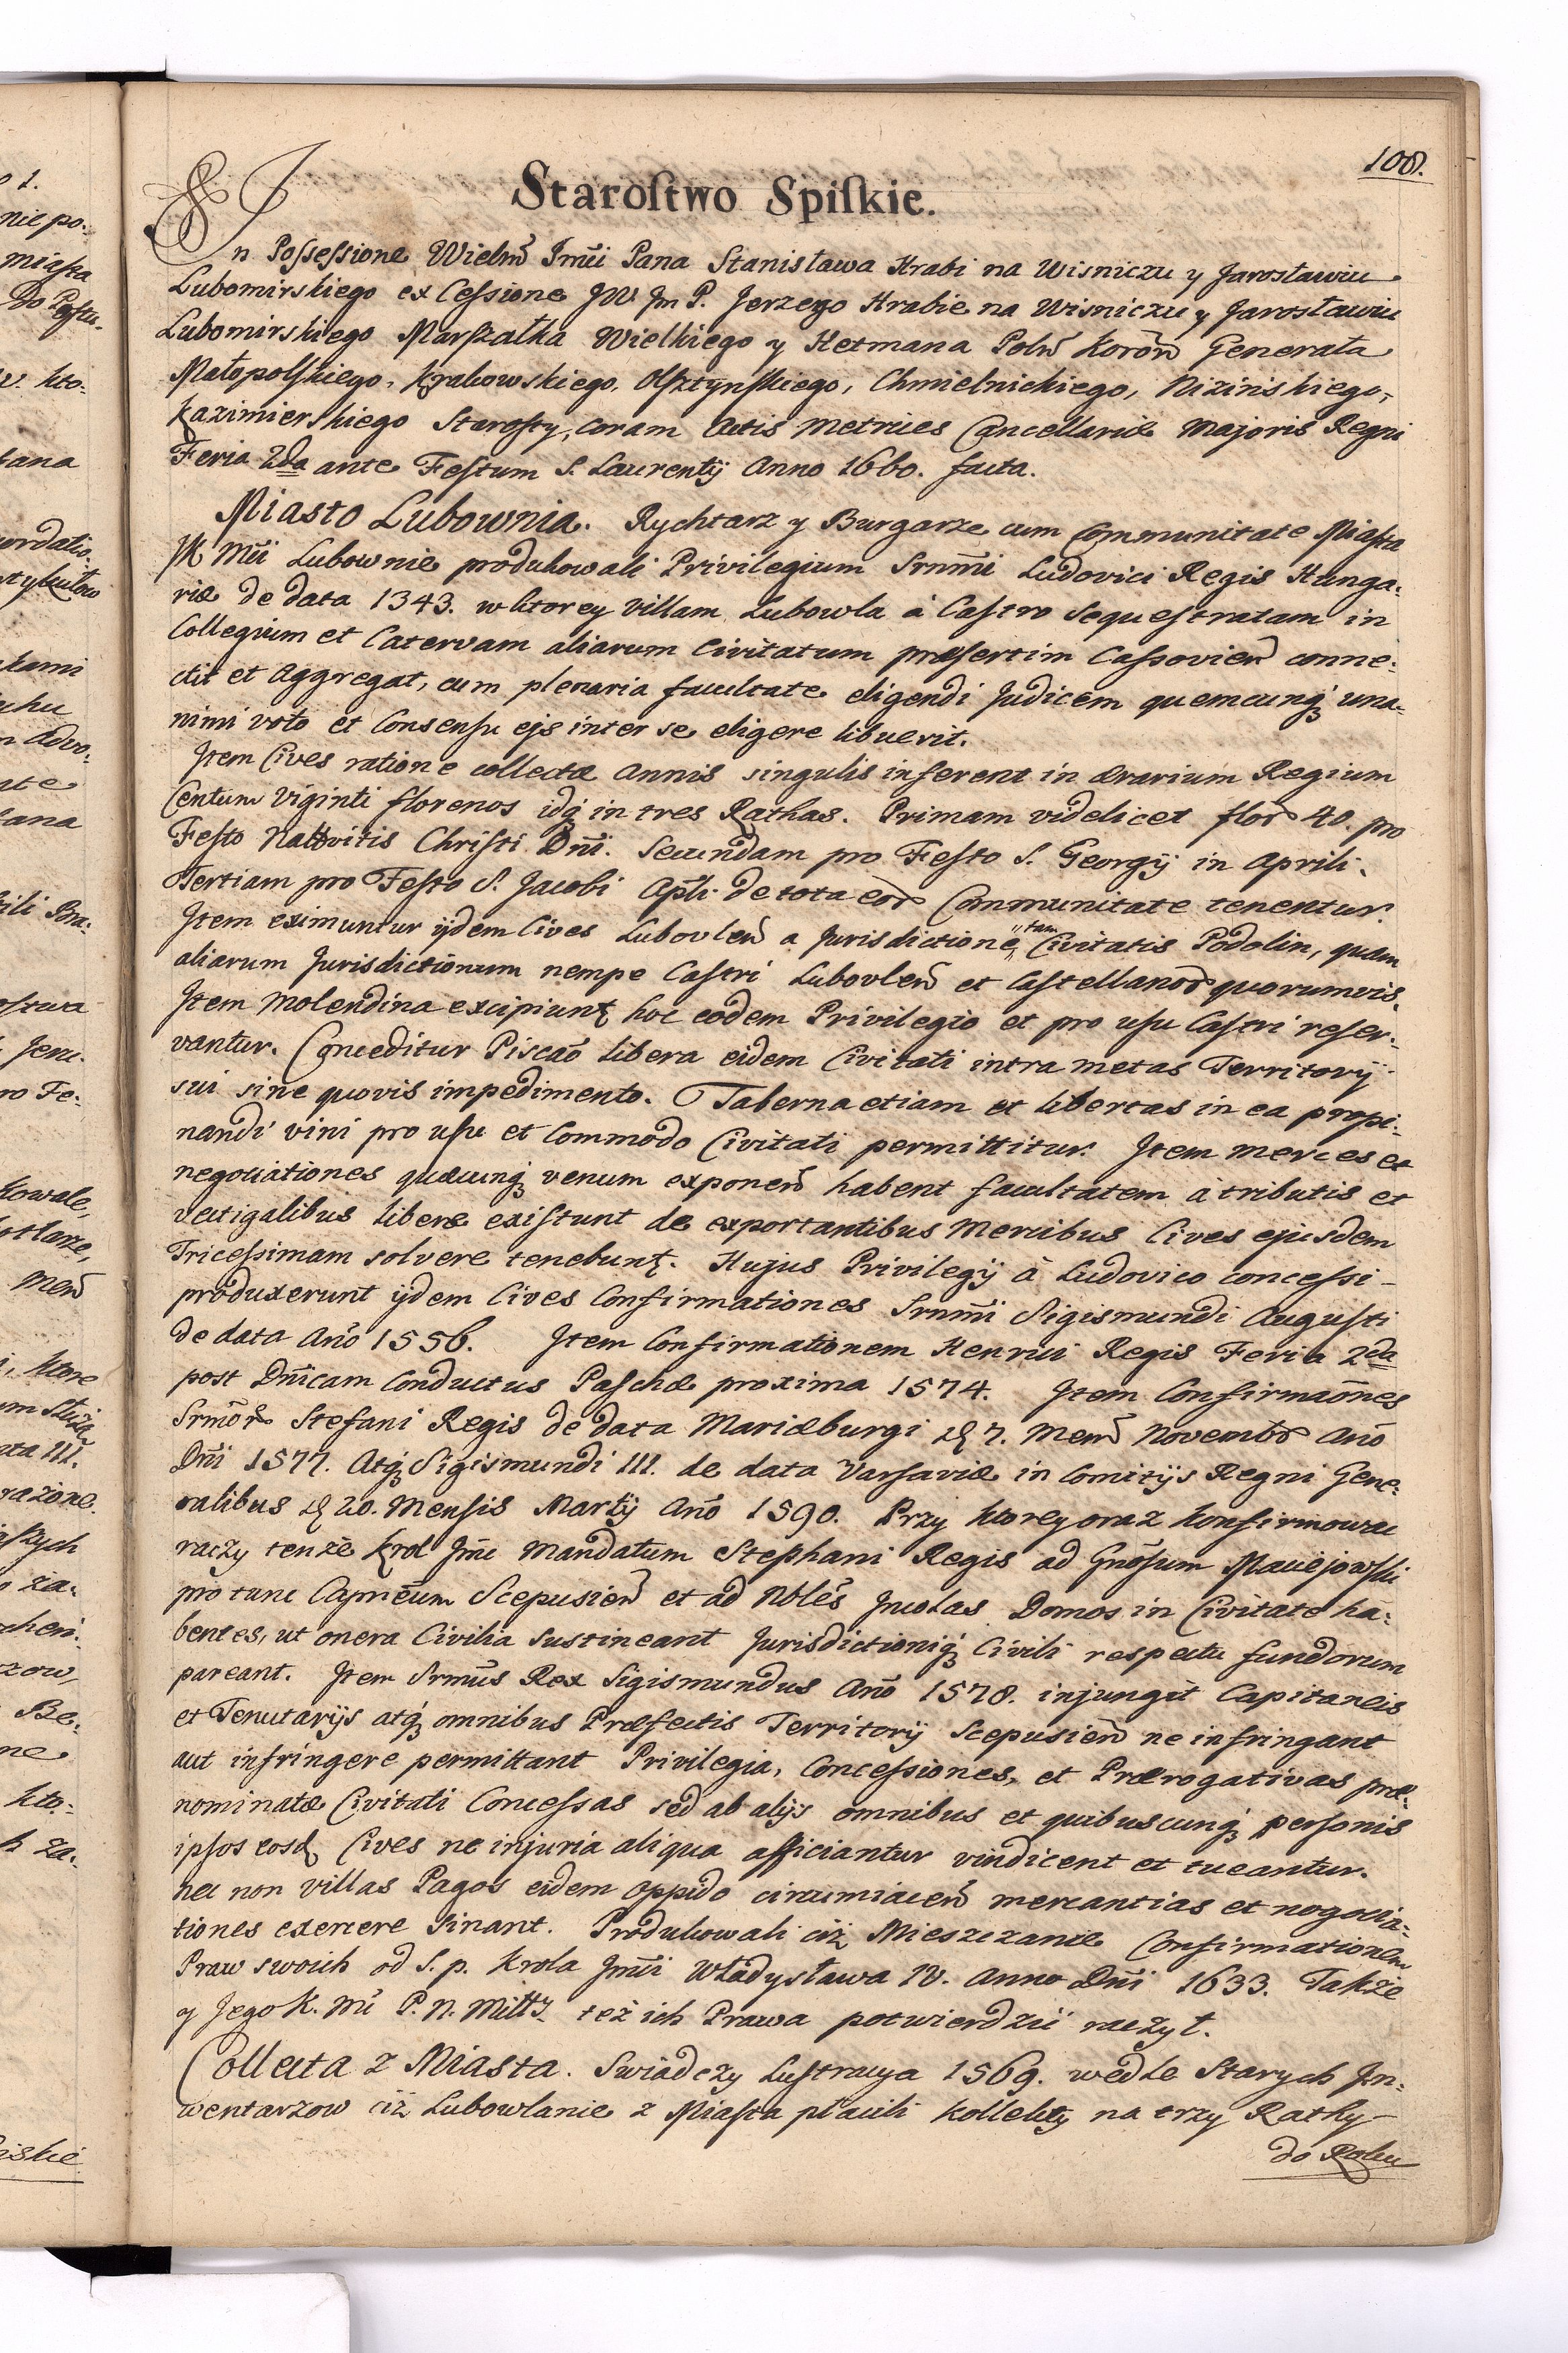 108.
Staroſtwo Spiſkie.
In Poſseſsione Wielm̃ Jm̃ci Pana Stanisława Hrabi na Wisniczu y Jarosławiu
Lubomirskiego ex Ceſsione JW. Jm P. Jerzego Hrabie na Wisniczu y Jarosławiu
Lubomirskiego Marſzałka Wielkiego y Hetmana Polñ Koroñ Generała
Małopolſkiego, Krakowskiego, Olſztynſkiego, Chmielnickiego, Nizinskiego,
Kazimierskiego Staroſty, coram Actis Metrices Cancellariæ Majoris Regni
Feria 2da ante Feſtum S. Laurentÿ Anno 1660. facta.
Miasto Lubownia. Rychtarz y Burgarze cum Communitate Miaſta
JK Mc̃i Lubownie produkowali Privilegium Srnm̃i Ludovici Regis Hunga-
riæ de data 1343. w ktorey villam Lubowla à Caſtro sequeſtratam in
Collegium et Catervam aliarum Civitatum præſertim Caſsovieñ conne-
ctit et Aggregat, cum plenaria facultate eligendi Judicem quemcunq; una-
nimi voto et Consenſu ejs inter se eligere libuerit.
Jtem Cives ratione collectæ Annis singulis inferent in Ærarium Regium
Centum Viginti florenos idq; in tres Rathas. Primam videlicet flor 40. pro
Feſto Nattvitis Chriſti Dñi. Secundam pro Feſto S. Georgÿ in Aprili.
Tertiam pro Feſto S. Jacobi Apl̃i de tota eor Communitate tenentur.
Jtem eximuntur ÿdem Cives Lubovleñ a Jurisdictione tam Civitatis Podolin, quam
aliarum Jurisdictionum nempe Caſtri Lubovleñ et Caſtellanor quorumvis.
Jtem Molendina excipiunt hoc eodem Privilegio et pro uſu Caſtri reſer-
vantur. Conceditur Piscaõ libera eidem Civitati intra metas Territorÿ
sui sine quovis impedimento. Taberna etiam et libertas in ea propi-
nandi vini pro uſu et Commodo Civitati permittitur. Jtem merces et
negotiationes quæcunq; venum exponeñ habent facultatem à tributis et
vectigalibus liberæ exiſtunt de exportantibus Mercibus Cives ejusdem
Triceſsimam solvere tenebunt. Hujus Privilegÿ à Ludovico conceſsi-
produxerunt ÿdem Cives Confirmationes Srnm̃i Sigismundi Auguſti
de data Año 1556. Jtem Confirmationem Henrici Regis Feria 2da
post Dñicam Conductus Paschæ proxima 1574. Jtem Confirmaõnes
Srm̃or Stefani Regis de data Mariæburgi d 7. Meñ Novembr Año
Dñi 1577. Atq; Sigismundi III. de data Varſaviæ in Comitÿs Regni Gene-
ralibus d 20. Mensis Martÿ Año 1590. Przy ktorey oraz konfirmowac
raczy tenże Krol Jmc̃ Mandatum Stephani Regis ad Gñoſum Maciejowſki
pro tunc Capneũm Scepusieñ et ad Nblẽs Jncolas Domos in Civitate ha-
bentes, ut onera Civilia suſtineant Jurisdictioniq; Civili respectu fundorum
pareant. Jtem Srmũs Rex Sigismundus Año 1578. injungit Capitaneis
et Tenutarÿs atq; omnibus Præfectis Territorÿ Scepusieñ ne infringant
aut infringere permittant Privilegia, Conceſsiones, et Prærogativas præ-
nominatæ Civitati Conceſsas sed ab alÿs omnibus et quibuscunq; perſonis
ipſos eosd Cives ne injuria aliqua afficiantur vindicent et tueantur.
nec non villas Pagos eidem Oppido circumiaceñ mercantias et negocia-
tiones exercere sinant. Produkowali ciż Mieszczanie Confirmationem
Praw swoich od S. p. Krola Jmc̃i Władysława IV. Anno Dñi 1633. Także
y Jego K. Mc̃ P. N. Miłł też ich Prawa potwierdzić raczył.
Collecta z Miasta. Swiadczy Luſtracya 1569. wedle Starych Jn-
wentarzow iż Lubowlanie z Miaſta płacili Kollekty na trzy Rathy
do Roku